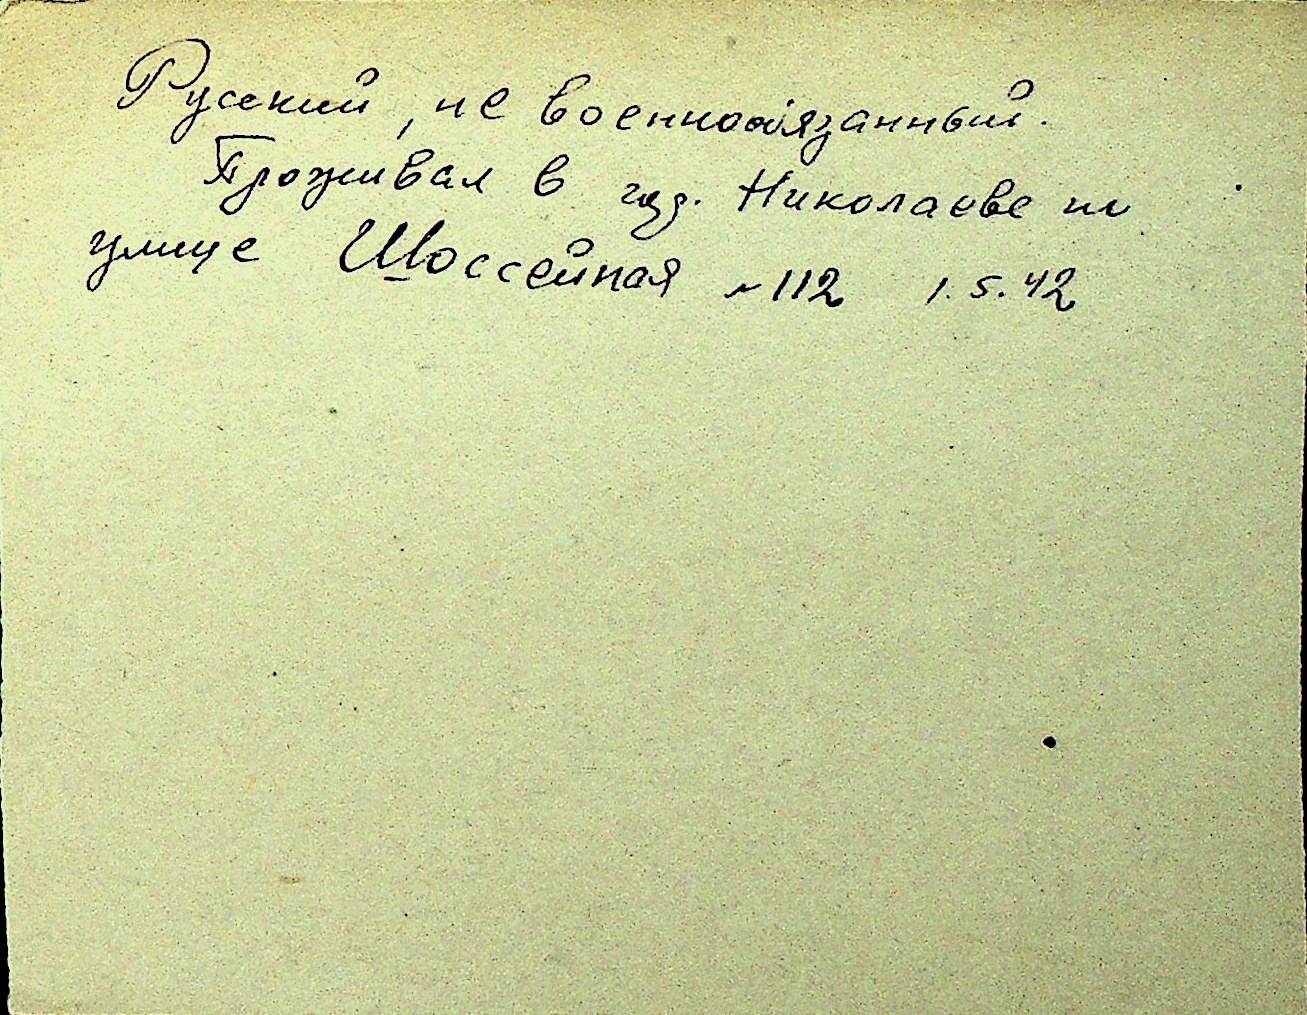 Русский, не военнообязанный.
Проживал в гор. Николаеве по
улице Шоссейная № 112 1.5.42